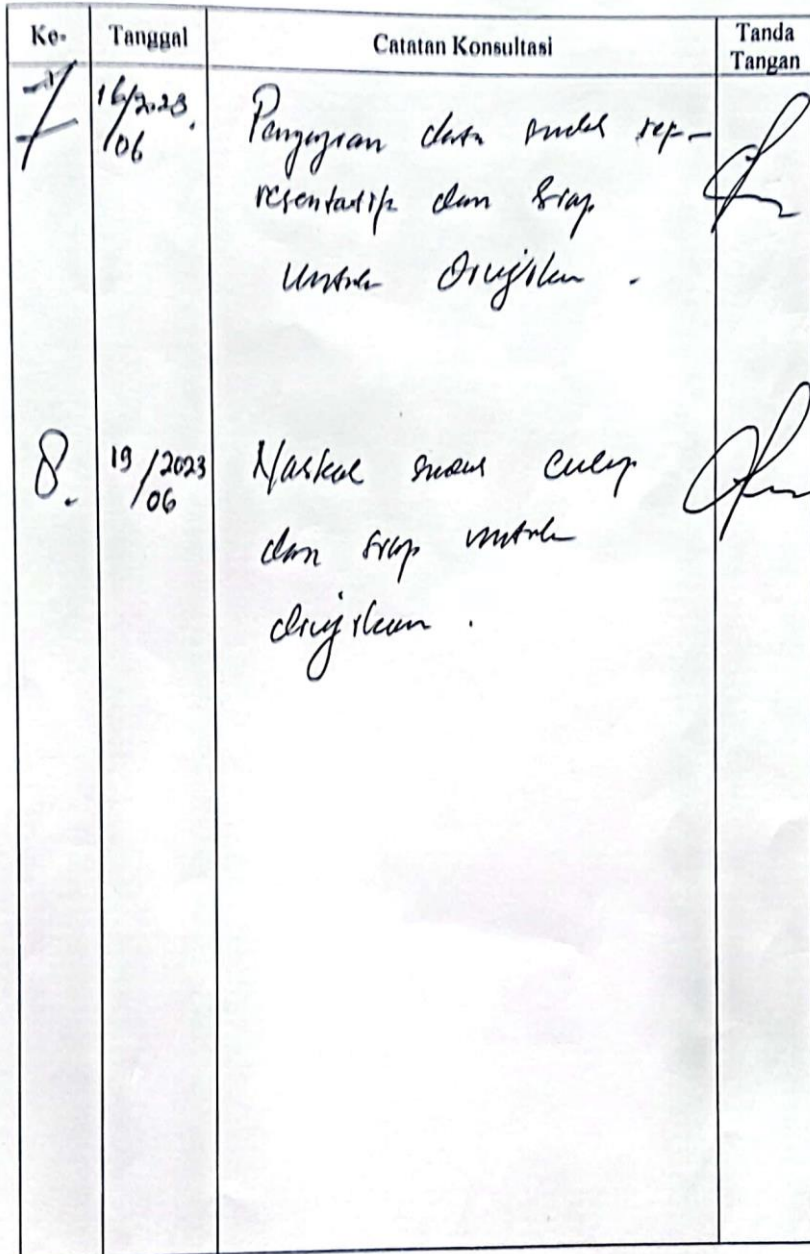 Ke- Tanggal Catatan Konsultasi Tanda Tangan
7 16/2023. 06 data sudah rep-
resentatip dan siap
untuk diujikan .
8. 19/2023 06 Naskah sudah cukup
dan siap untuk
diujikan .